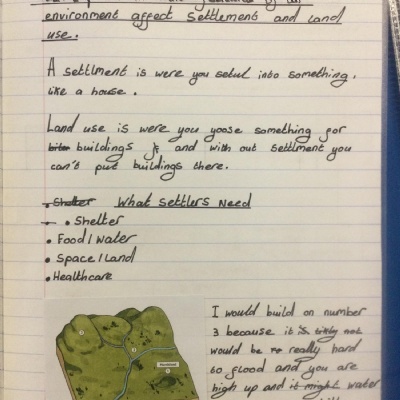 environment affect settlement and land
use.
A settlment is were you setul into something,
like a house.
Land use is were you yoose something for
buildings and with out settlment you
can't put buildings there.
What settlers need
• Shelter
• Food/Water
• Space/Land
• Healthcare
I would build on number
3 because it is not
would be really hard
to flood and you are
high up and it might water